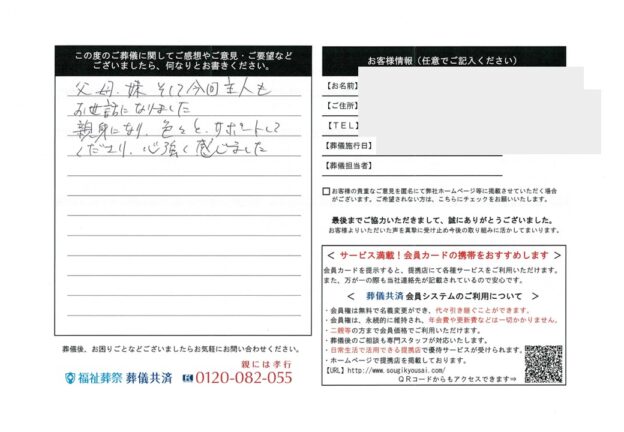 この度のご葬儀に関してご感想やご意見・ご要望など
ございましたら、何なりとお書きください。
父母、妹 そして今回主人も
お世話になりました
親身になり、色々と、サポートして
くださり、心強く感じました
葬儀後、お困りごとなどございましたらお気軽にお問い合わせください。
親には孝行
福祉葬祭 葬儀共済 0120-082-055
お客様情報(任意でご記入ください)
【お名前】
【ご住所】
【TEL】
【葬儀施行日】
【葬儀担当者】
お客様の貴重なご意見を匿名にて弊社ホームページ等に掲載させていただく場合
がございます。ご希望されない方は、こちらにチェックをお願いいたします。
最後までご協力いただきまして、誠にありがとうございました。
お客様よりいただいた声を真摯に受け止め今後の取り組みに活かしてまいります。
< サービス満載!会員カードの携帯をおすすめします >
会員カードを提示すると、提携店にて各種サービスをご利用いただけます。
また、万が一の際も当社連絡先が記載されているので安心です。
< 葬儀共済 会員システムのご利用について >
・会員権は無料で名義変更ができ、代々引き継ぐことができます。
・会員権は、永続的に維持され、年会費や更新費などは一切かかりません。
・二親等の方まで会員価格でご利用いただけます。
・葬儀後のご相談も専門スタッフが対応いたします。
・日常生活で活用できる提携店で優待サービスが受けられます。
・ホームページで提携店を掲載しております。
【URL】http://www.sougikyousai.com/
QRコードからもアクセスできます⇒